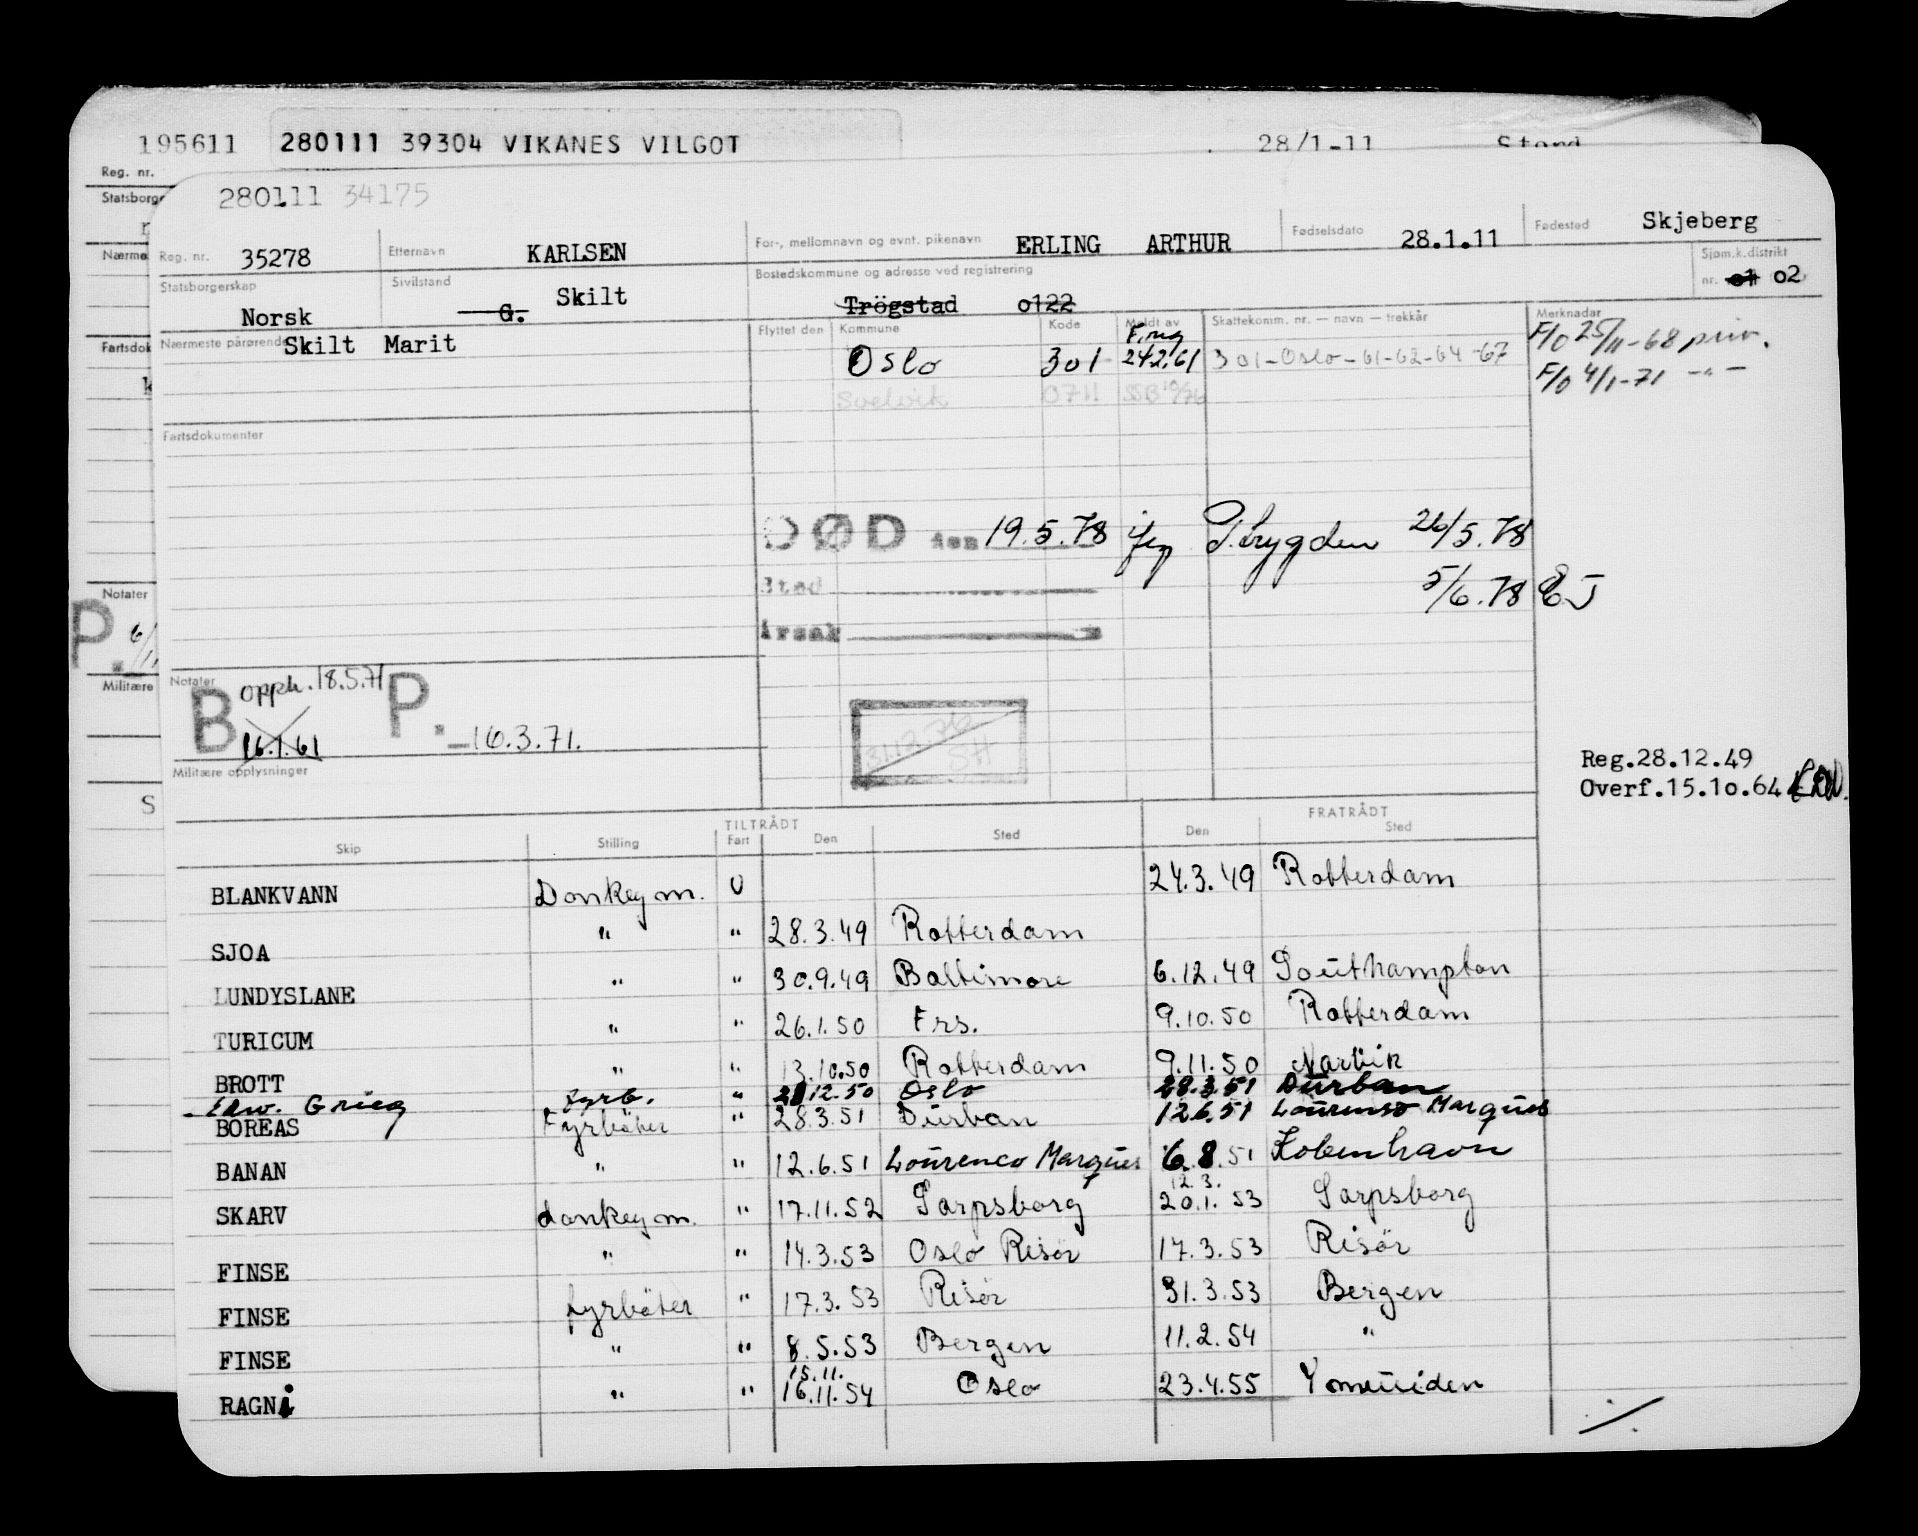 195611 280111 39304 VIKANES VILGOT 28/1-11 Stord
Reg. nr.
Statsborge
Nærme
Fartsdok
Notater
P. 6/1
Militære
S
280111 34175
Reg. nr. 35278 Etternavn KARLSEN For-, mellomnavn og evnt. pikenavn ERLING ARTHUR Fødselsdato 28.1.11 Fødested Skjeberg
Statsborgerskap Norsk Sivilstand G. Skilt Bostedskommune og adresse ved registrering Trögstad o122 Sjøm.k.distrikt nr. o1 o2
Nærmeste pårørende Skilt Marit Flyttet den Kommune Kode Meldt av Skattekomm. nr. — navn — trekkår Merknadar
Oslo 301 F.reg 24.2.61 301-Oslo-61-62-64-67 F/o 25/11-68 priv.
Svelvik 0711 SSB 10/76 F/o 4/1-71 -"-
Fartsdokumenter
DØD den 19.5.78 iføg T.trygden 26/5.78
Sted 5/6.78 EJ
Årsak
Notater B opph. 18.5.71 P. 16.3.71.
16.1.61
31.12.76 SH
Militære opplysninger
Reg.28.12.49
Overf.15.1o.64
TILTRÅDT FRATRÅDT
Skip Stilling Fart Den Sted Den Sted
BLANKVANN Donkeym. U 24.3.49 Rotterdam
SJOA " " 28.3.49 Rotterdam
LUNDYSLANE " " 30.9.49 Baltimore 6.12.49 Southampton
TURICUM " " 26.1.50 Frs. 9.10.50 Rotterdam
BROTT " " 13.10.50 Rotterdam 9.11.50 Narvik
Edw. Grieg fyrb. " 21.12.50 Oslo 28.3.51 Durban
BOREAS Fyrböter " 28.3.51 Durban 12.6.51 Lourenso Marques
BANAN " " 12.6.51 Lourenco Marques 6.8.51 Kobenhavn
SKARV donkeym. " 17.11.52 Sarpsborg 12.3. 20.1.53 Sarpsborg
FINSE " " 14.3.53 Oslo Risör 17.3.53 Risör
FINSE fyrböter " 17.3.53 Risör 31.3.53 Bergen
FINSE " " 8.5.53 Bergen 11.2.54 "
RAGNi " " 15.11. 16.11.54 Oslo 23.4.55 Ymuiden
./.